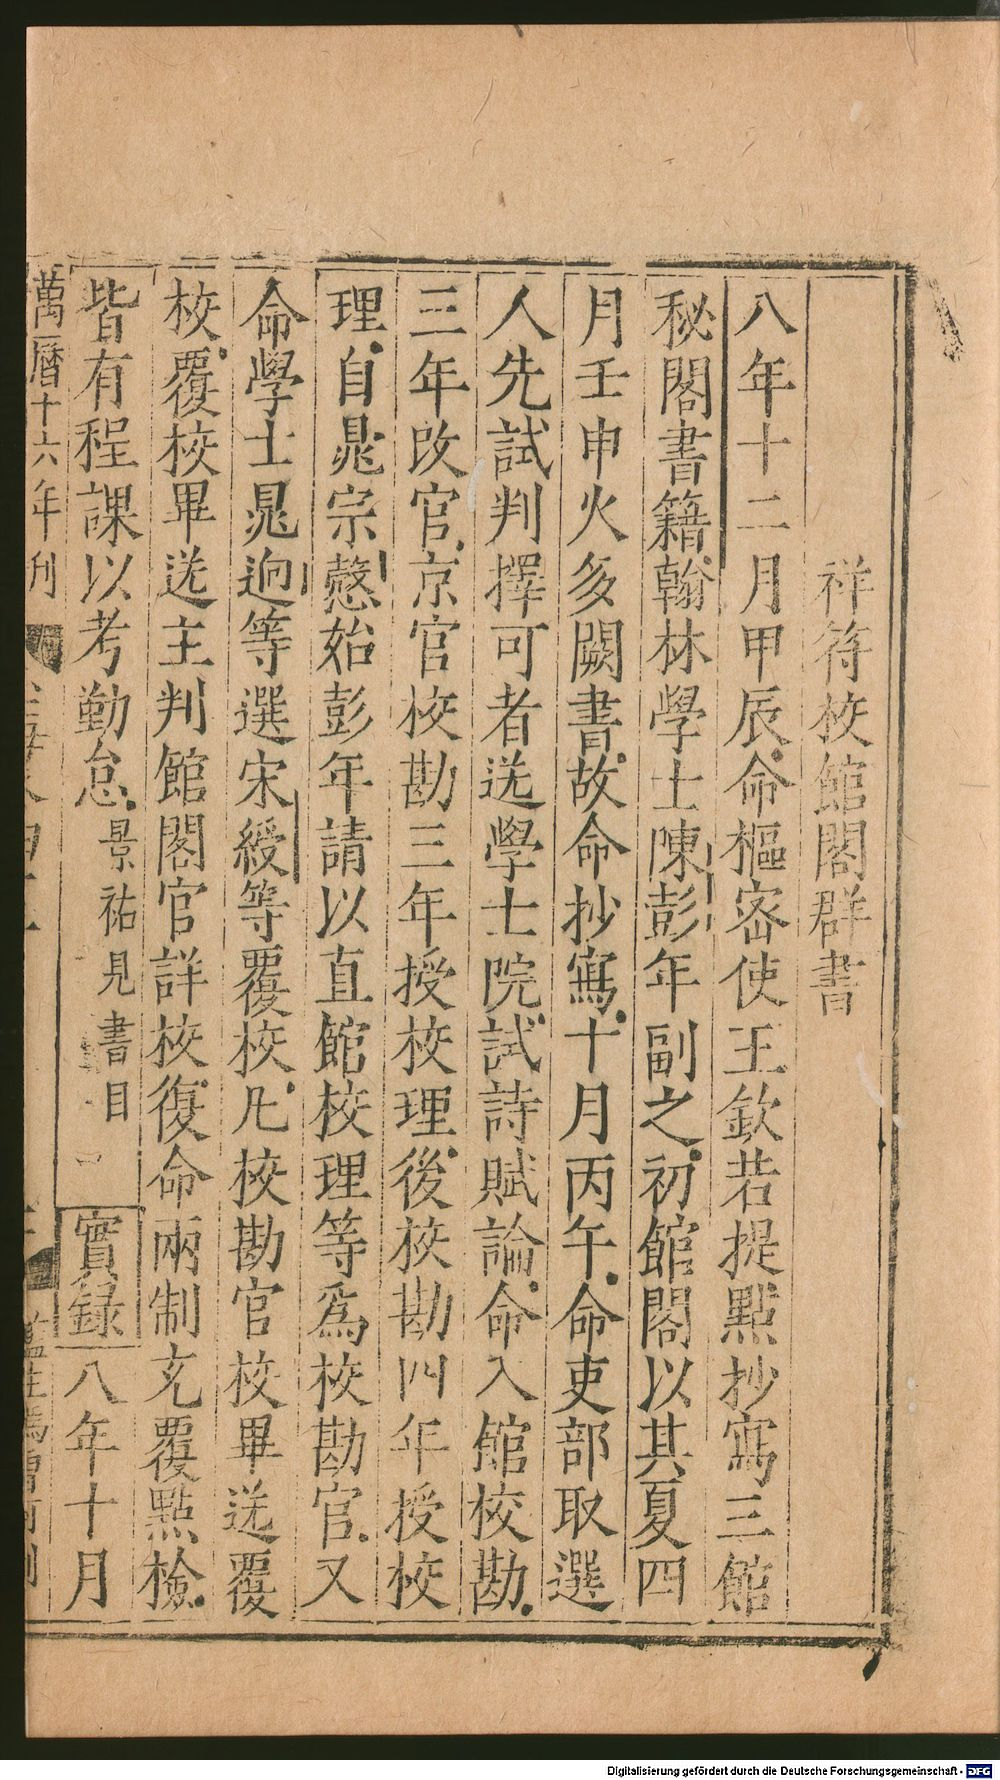 祥符校館閣群書
八年十二月甲辰命樞密使王欽若提點抄寫三館
秘閣書籍翰林學士陳彭年副之初館閣以其夏四
月壬申火多闕書故命抄寫十月丙午命吏部取選
人先試判擇可者送學士院試詩賦論命入館校勘
三年改官京官校勘三年授校理後校勘四年授校
理自晁宗愨始彭年請以直館校理等爲校勘官又
命學士晁迥等選宋綬等覆校凡校勘官校畢送覆
校覆校畢送主判館閣官詳校復命兩制充覆點檢
皆有程課以考勤怠景祐見書目實録八年十月
萬曆十六年刋
Digitalisierung gefördert durch die Deutsche Forschungsgemeinschaft - DFG